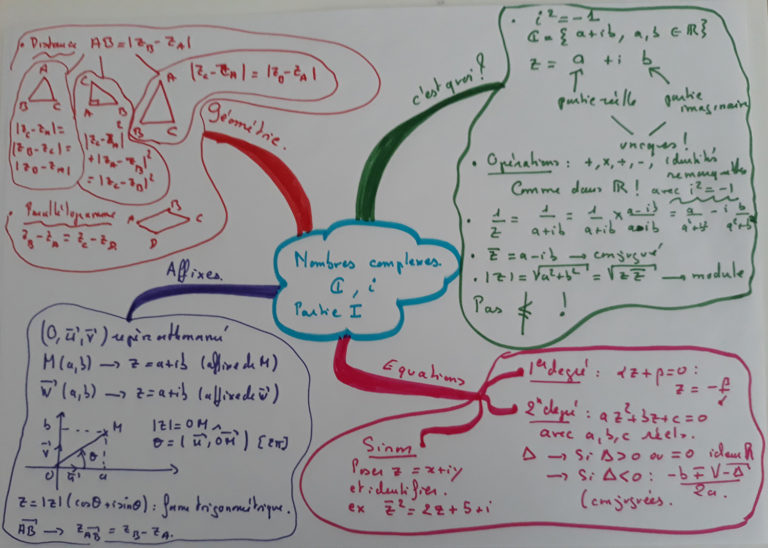 Nombres complexes.
ℂ, i
Partie I
c'est quoi?
• i² = -1
ℂ = { a+ib, a,b ∈ ℝ }
z = a + i b
partie réelle partie imaginaire
uniques!
• Opérations : +, x, ÷, -, identités remarquables
Comme dans ℝ ! avec i² = -1
• 1/z = 1/(a+ib) = 1/(a+ib) × (a-ib)/(a-ib) = a/(a²+b²) - i b/(a²+b²)
• z̄ = a-ib → conjugué
• |z| = √(a²+b²) = √(z z̄) → module
Pas !
Géométrie.
• Distance AB = |z_B - z_A|
A
B C
|z_C - z_A| =
|z_B - z_C| =
|z_B - z_A|
C
A B
|z_C - z_A|²
+ |z_A - z_B|²
= |z_C - z_B|²
A
B C
|z_C - z_A| = |z_B - z_A|
• Parallélogramme
A B C D
z_B - z_A = z_C - z_D
Affixes.
(O, u⃗, v⃗) repère orthonormé
M(a,b) → z = a+ib (affixe de M)
w⃗(a,b) → z = a+ib (affixe de w⃗)
b M
v⃗ θ
O u⃗ a
|z| = OM
θ = (u⃗, OM⃗) [2π]
z = |z| (cosθ + i sinθ) : forme trigonométrique.
AB⃗ → z_AB⃗ = z_B - z_A.
Equations
1er degré : αz + β = 0 :
z = -β/α
2e degré : az² + bz + c = 0
avec a, b, c réels.
Δ → Si Δ > 0 ou = 0 idem ℝ
→ Si Δ < 0 : (-b ∓ i√-Δ)/2a
(conjuguées.
Sinon
Poser z = x+iy
et identifier.
ex z̄² = 2z + 5 + i